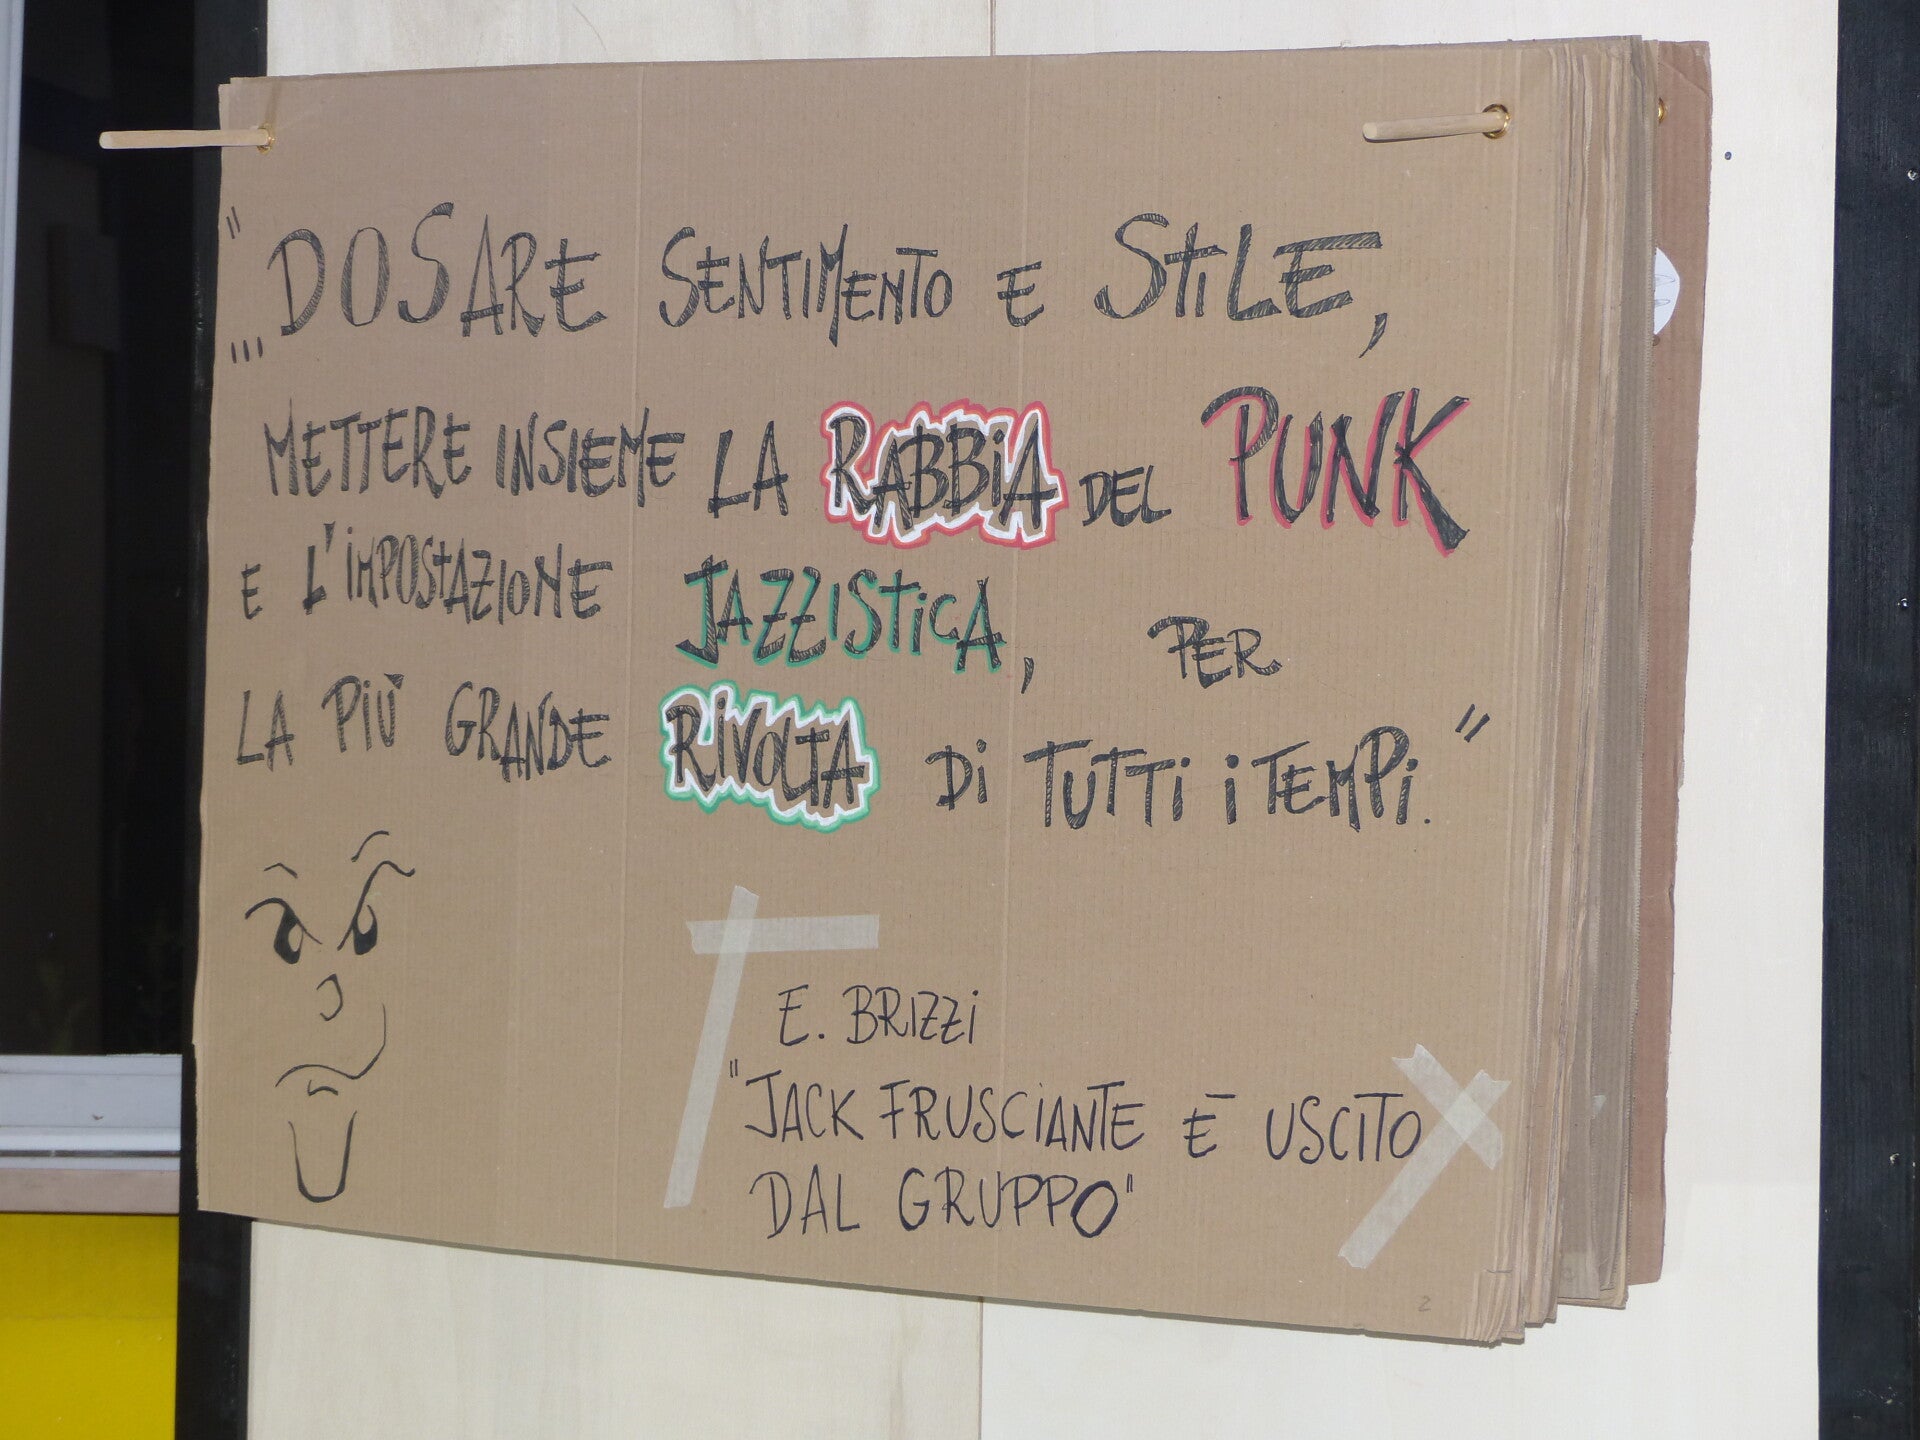 "...DOSARE SENTIMENTO E STILE,
METTERE INSIEME LA RABBIA DEL PUNK
E L'IMPOSTAZIONE JAZZISTICA, PER
LA PIÙ GRANDE RIVOLTA DI TUTTI I TEMPI."
E. BRIZZI
"JACK FRUSCIANTE È USCITO
DAL GRUPPO"
2